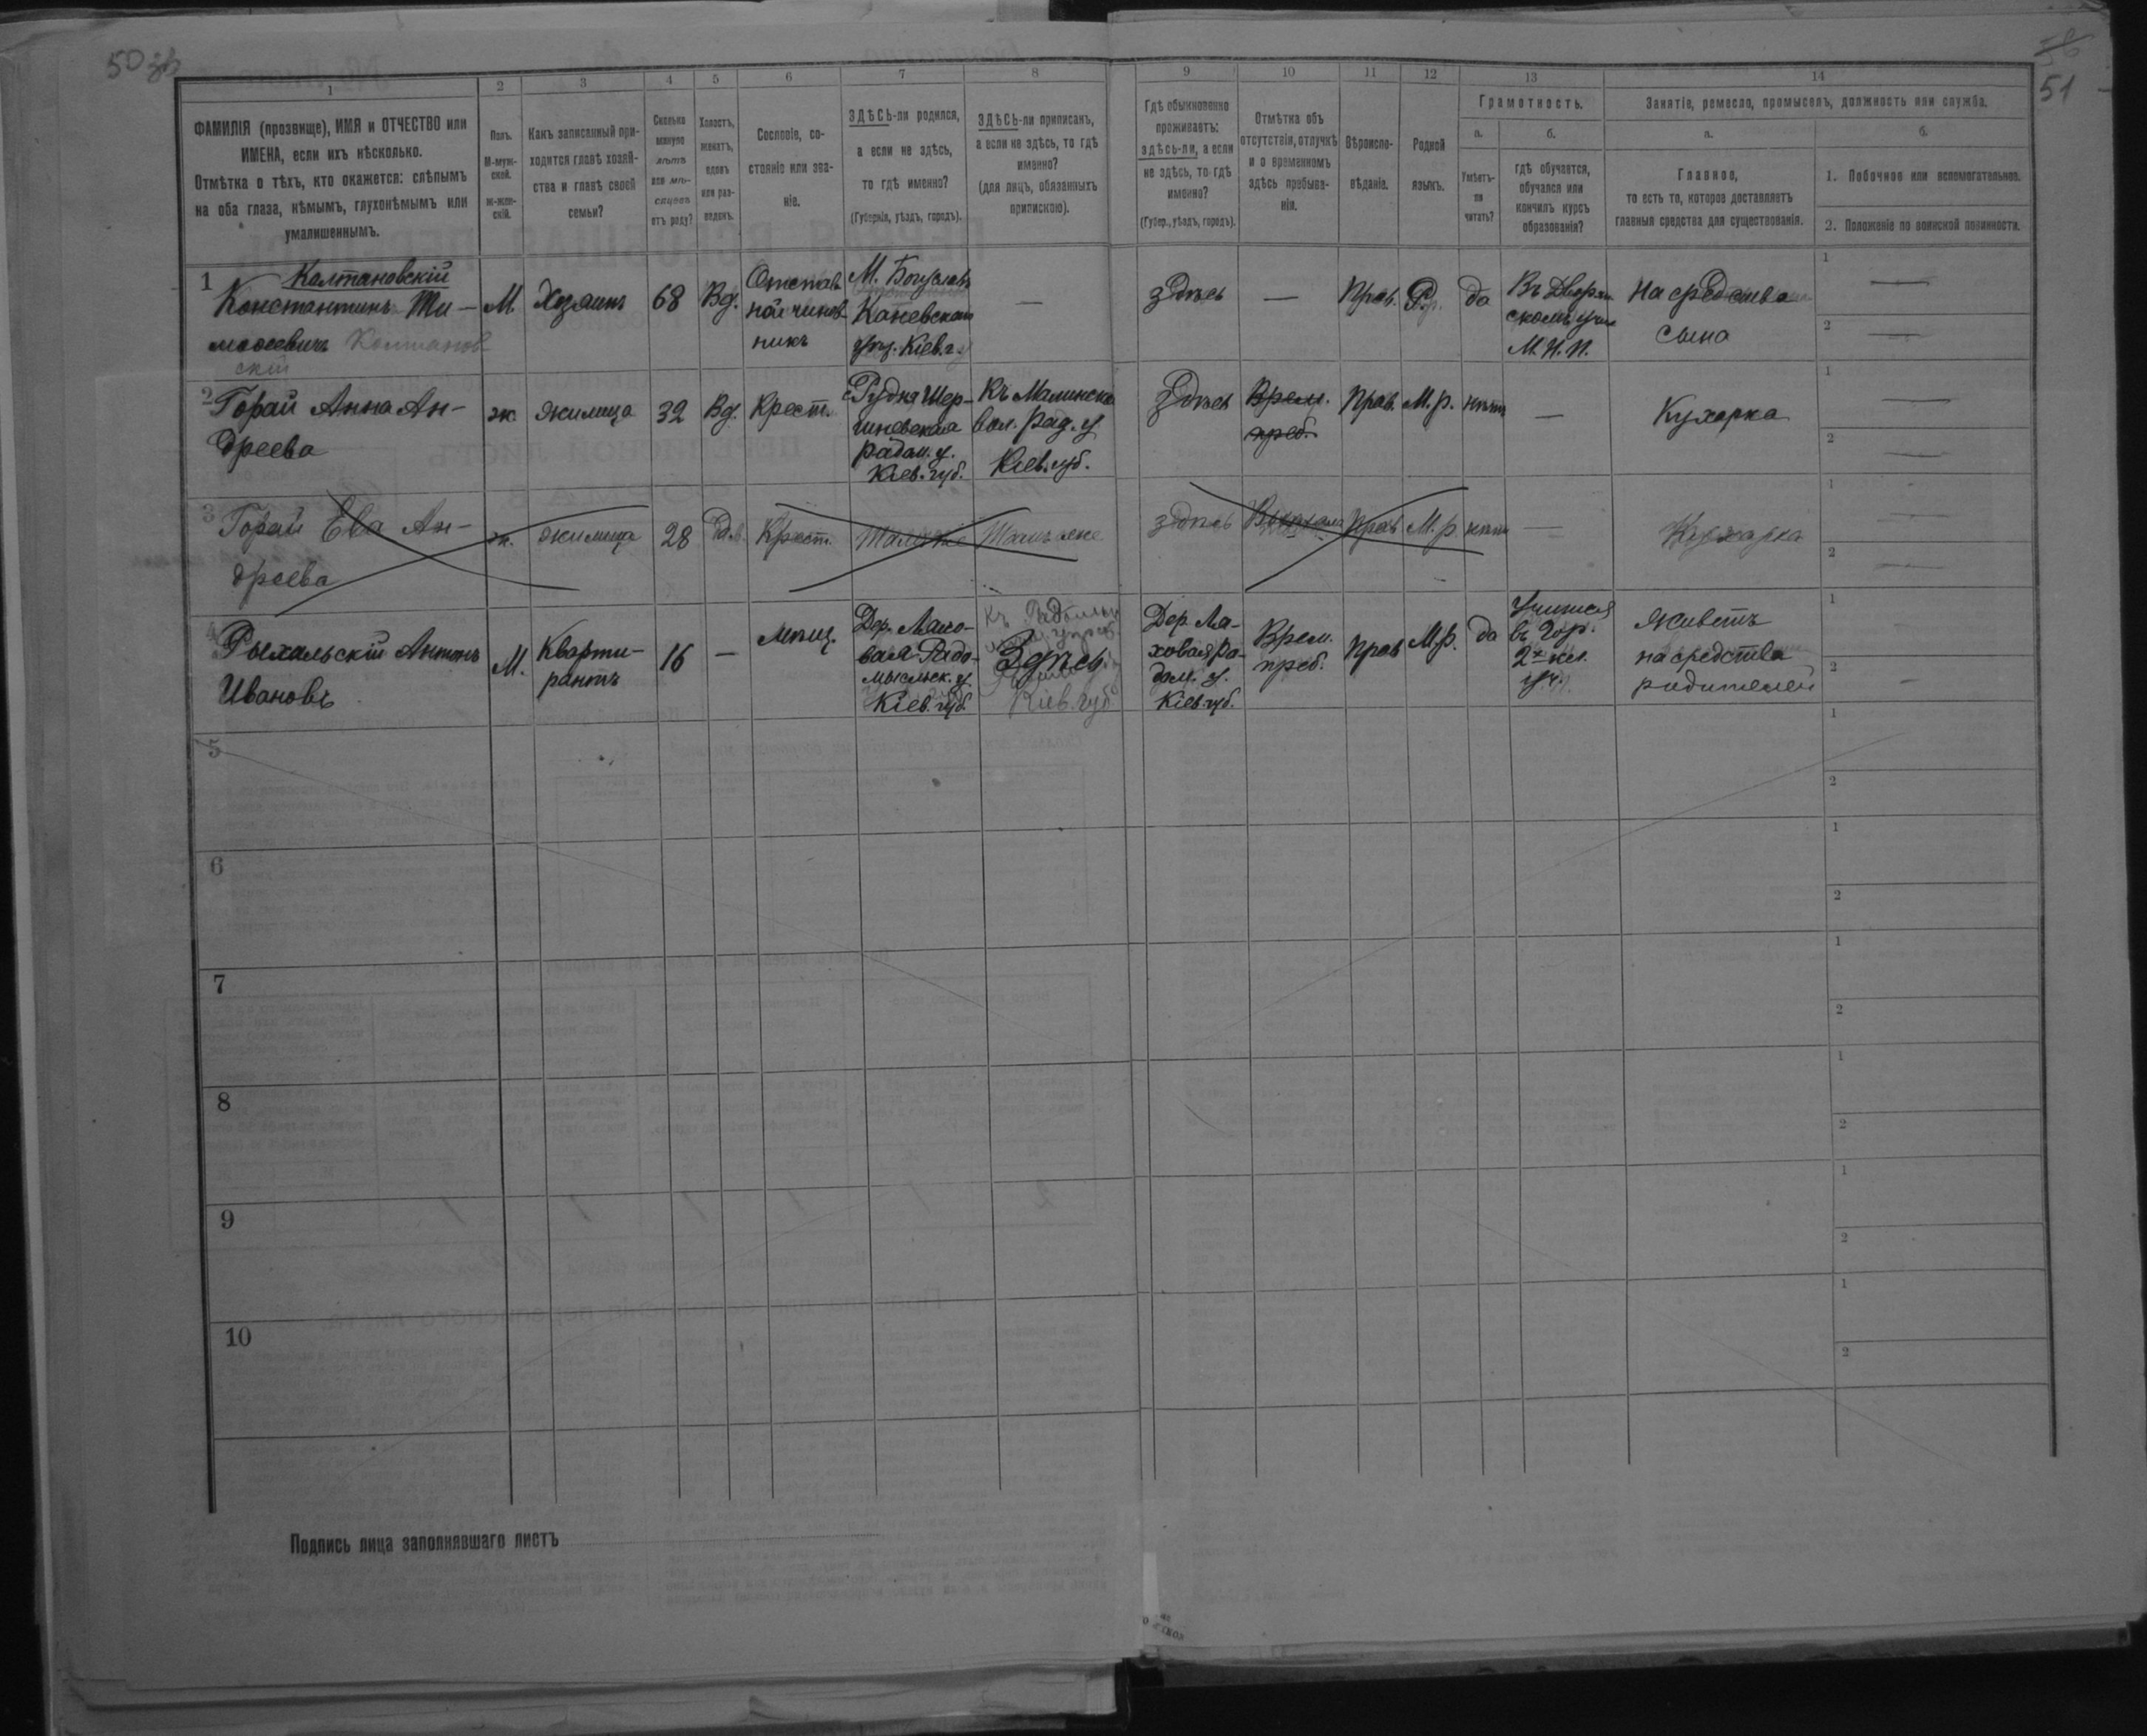 50 зв
51
1
2
3
4
5
6
7
8
9
10
11
12
13
14
ФАМИЛІЯ (прозвище), ИМЯ и ОТЧЕСТВО или
ИМЕНА, если ихъ нѣсколько.
Отмѣтка о тѣхъ, кто окажется: слѣпымъ
на оба глаза, нѣмымъ, глухонѣмымъ или
умалишеннымъ.
Полъ.
М-муж-
ской.
Ж-жен-
скій.
Какъ записанный при-
ходится главѣ хозяй-
ства и главѣ своей
семьи?
Сколько
минуло
лѣтъ
или мѣ-
сяцевъ
отъ роду?
Холостъ,
женатъ,
вдовъ
или раз-
веденъ.
Сословіе, со-
стояніе или зва-
ніе.
ЗДѢСЬ-ли родился,
а если не здѣсь,
то гдѣ именно?
(Губернія, уѣздъ, городъ).
ЗДѢСЬ-ли приписанъ,
а если не здѣсь, то гдѣ
именно?
(для лицъ, обязанныхъ
припискою).
Гдѣ обыкновенно
проживаетъ:
здѣсь-ли, а если
не здѣсь, то гдѣ
именно?
(Губер., уѣздъ, городъ).
Отмѣтка объ
отсутствіи, отлучкѣ
и о временномъ
здѣсь пребыва-
ніи.
Вѣроиспо-
вѣданіе.
Родной
языкъ.
Грамотность.
а.
б.
Умѣетъ-
ли
читать?
гдѣ обучается,
обучался или
кончилъ курсъ
образованія?
Занятіе, ремесло, промыселъ, должность или служба.
а.
б.
Главное,
то есть то, которое доставляетъ
главныя средства для существованія.
1. Побочное или вспомогательное.
2. Положеніе по воинской повинности.
1
Колтановскій
Константинъ Ти-
моѳеевичъ Колтанов
скій
М.
Хозяинъ
68
Вд.
Отстав
ной чинов
никъ
М. Богуславъ
Каневскаго
уѣз. Кіев. г.
—
здѣсь
—
Прав.
Р.
да
Въ Дворян
скомъ учил
М. Н. П.
На средства
сына
1
—
2
—
2
Горай Анна Ан-
дреева
ж.
жилица
32
Вд.
Крест.
Рудня
Радом. у.
Кіев. губ.
Къ Малинско
вол. Рад. у
Кіев. губ.
Здѣсь
Врем.
преб.
Прав.
М. р.
нѣтъ
—
Кухарка
1
2
—
3
Горай Ева Ан-
дреева
ж.
жилица
28
Крест.
Тамъ же
Тамъ же
здѣсь
Прав
М. р.
нѣтъ
—
Кухарка
1
—
2
—
4
Рыхальскій Антонъ
Ивановъ
М.
Кварти-
рантъ
16
—
мѣщ.
Дер. Ляхо-
вая Радо-
мысльск. у.
Кіев. губ.
Здѣсь
Кіев. губ.
Дер. Ля-
ховая Ра-
дом. у.
Кіев. губ.
Врем.
преб.
Прав
М. р.
да
Учится
въ Гор.
2х кл.
уч.
Живетъ
на средства
родителей
1
2
—
5
1
2
6
1
2
7
1
2
8
1
2
9
1
2
10
1
2
Подпись лица заполнявшаго листъ